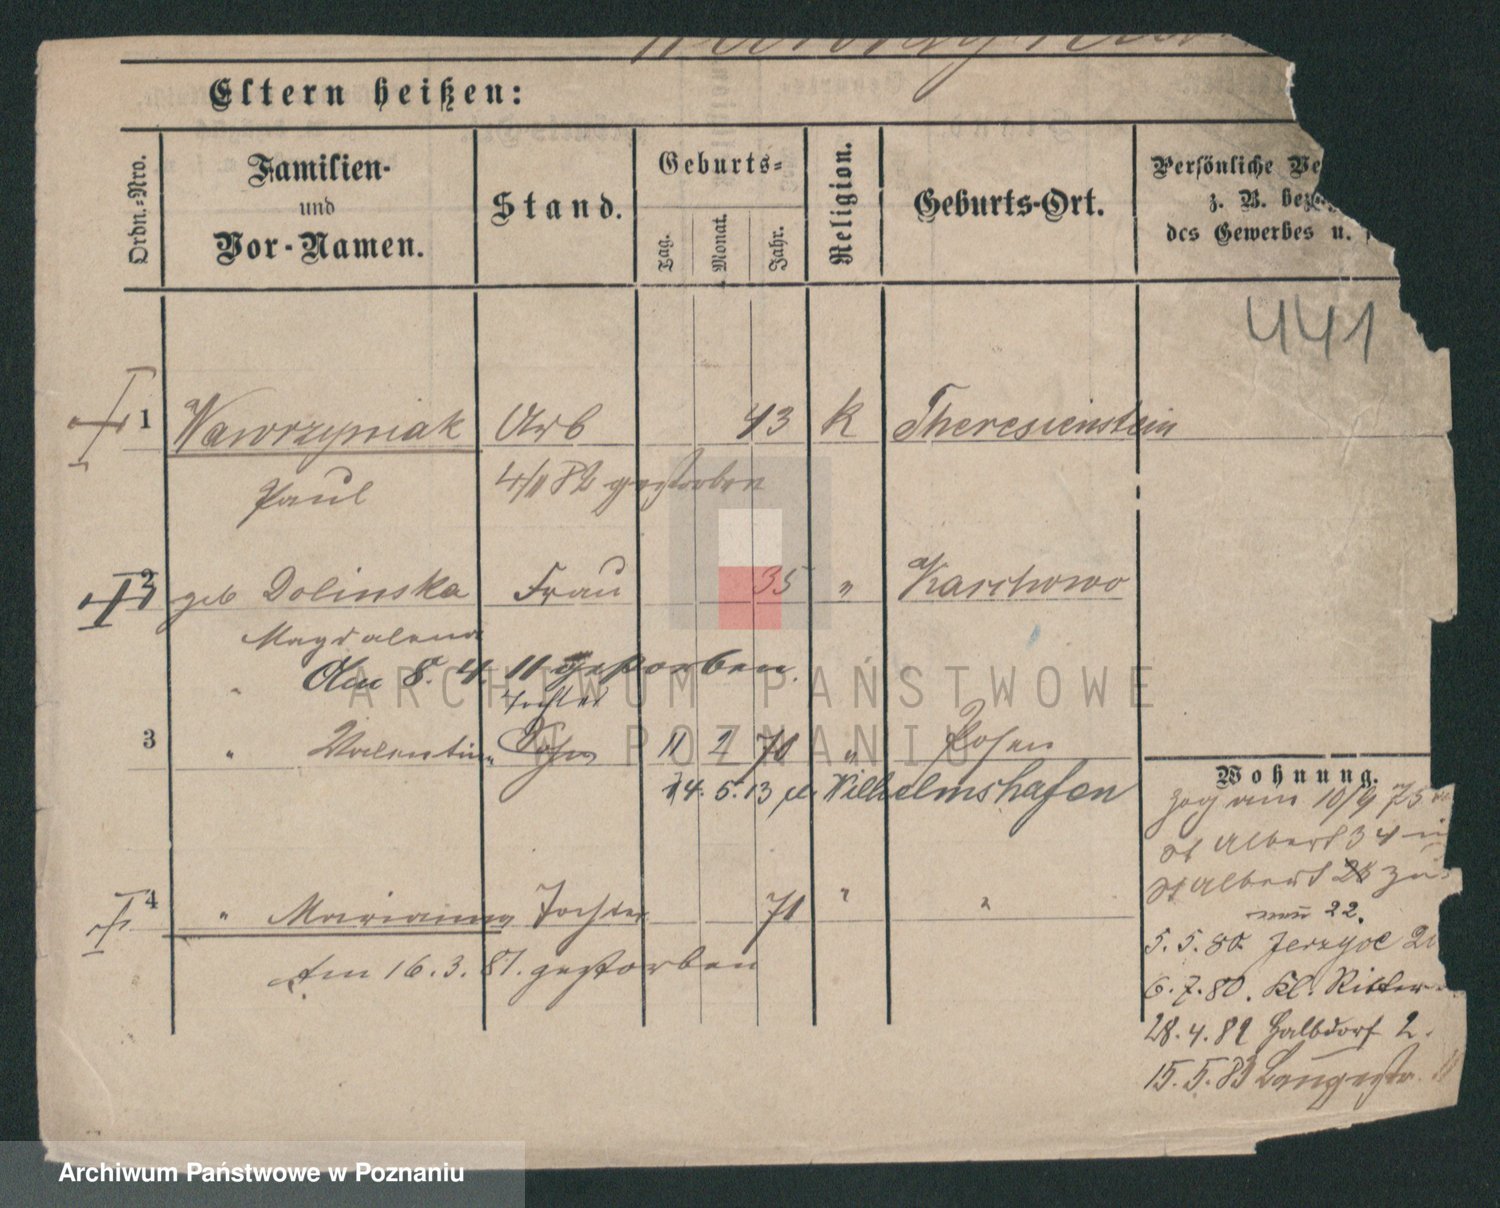 Eltern heißen:
Ordn.-Nro.
Familien-
und
Vor-Namen.
Stand.
Geburts-
Tag.
Monat.
Jahr.
Religion.
Geburts-Ort.
Persönliche Ve
z. B. bez
des Gewerbes u.
441
1 Wawrzyniak Arb 43 K Theresienstein
Paul 4/11 82 gestorben
2 geb Dolinska Frau 35 " Karschowo
Magdalena
Am 8. 4. 11 gestorben.
Tochter
3 " Valentin Sohn 11 2 70 " Posen
14. 5. 13 Wilhelmshafen
4 " Marianna Tochter 71 " "
Am 16. 3. 87. gestorben
Wohnung.
zog am 10/9 75
St Albert 34
St Albert 28 zu
22.
5. 5. 80. Jerzyce
6. 7. 80. Kl. Ritter
28. 4. 82 Halbdorf 2.
15. 5. 83 Langestr.
ARCHIWUM PAŃSTWOWE
W POZNANIU
Archiwum Państwowe w Poznaniu